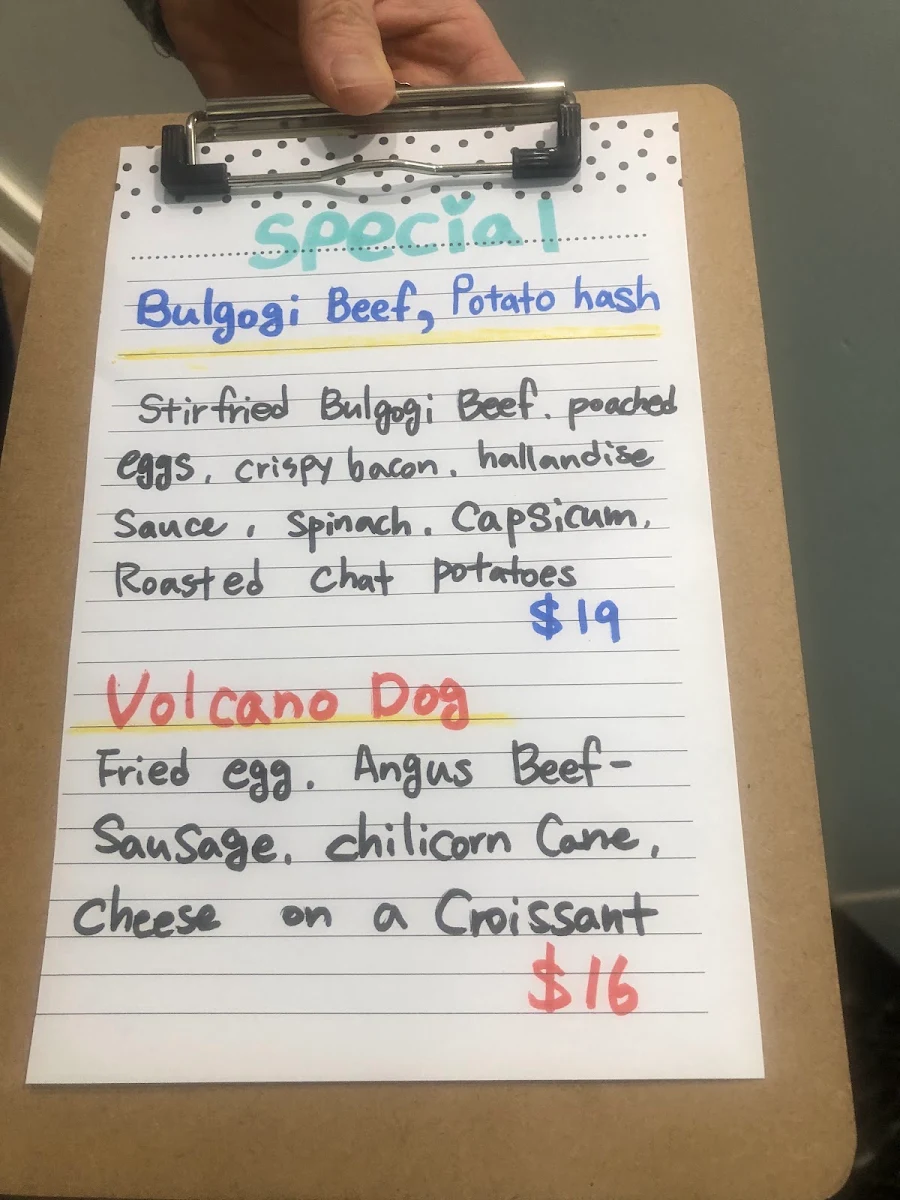 special
Bulgogi Beef, Potato hash
Stirfried Bulgogi Beef. poached
eggs, crispy bacon. hallandise
Sauce, Spinach. Capsicum,
Roasted Chat potatoes
$19
Volcano Dog
Fried egg. Angus Beef-
Sausage. chilicorn Cane,
Cheese on a Croissant
$16